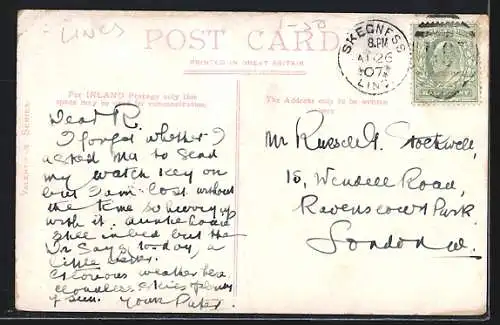 LINCS
1-50
POST CARD
PRINTED IN GREAT BRITAIN
SKEGNESS
8.PM
26
07
LINCS
For INLAND Postage only this
space may be used for communication.
The Address only to be written
here.
VALENTINES SERIES
Dear R.
I forgot whether I
asked Ma to send
my watch key on
but I am lost without
the time so hurry up
with it. Auntie
still in bed but the
Dr Says today, a
little better.
Glorious weather here
cloudless skies plenty
of sun. Your
Mr Russell G. Stockwell,
15, Wendell Road,
Ravenscourt Park
London W.